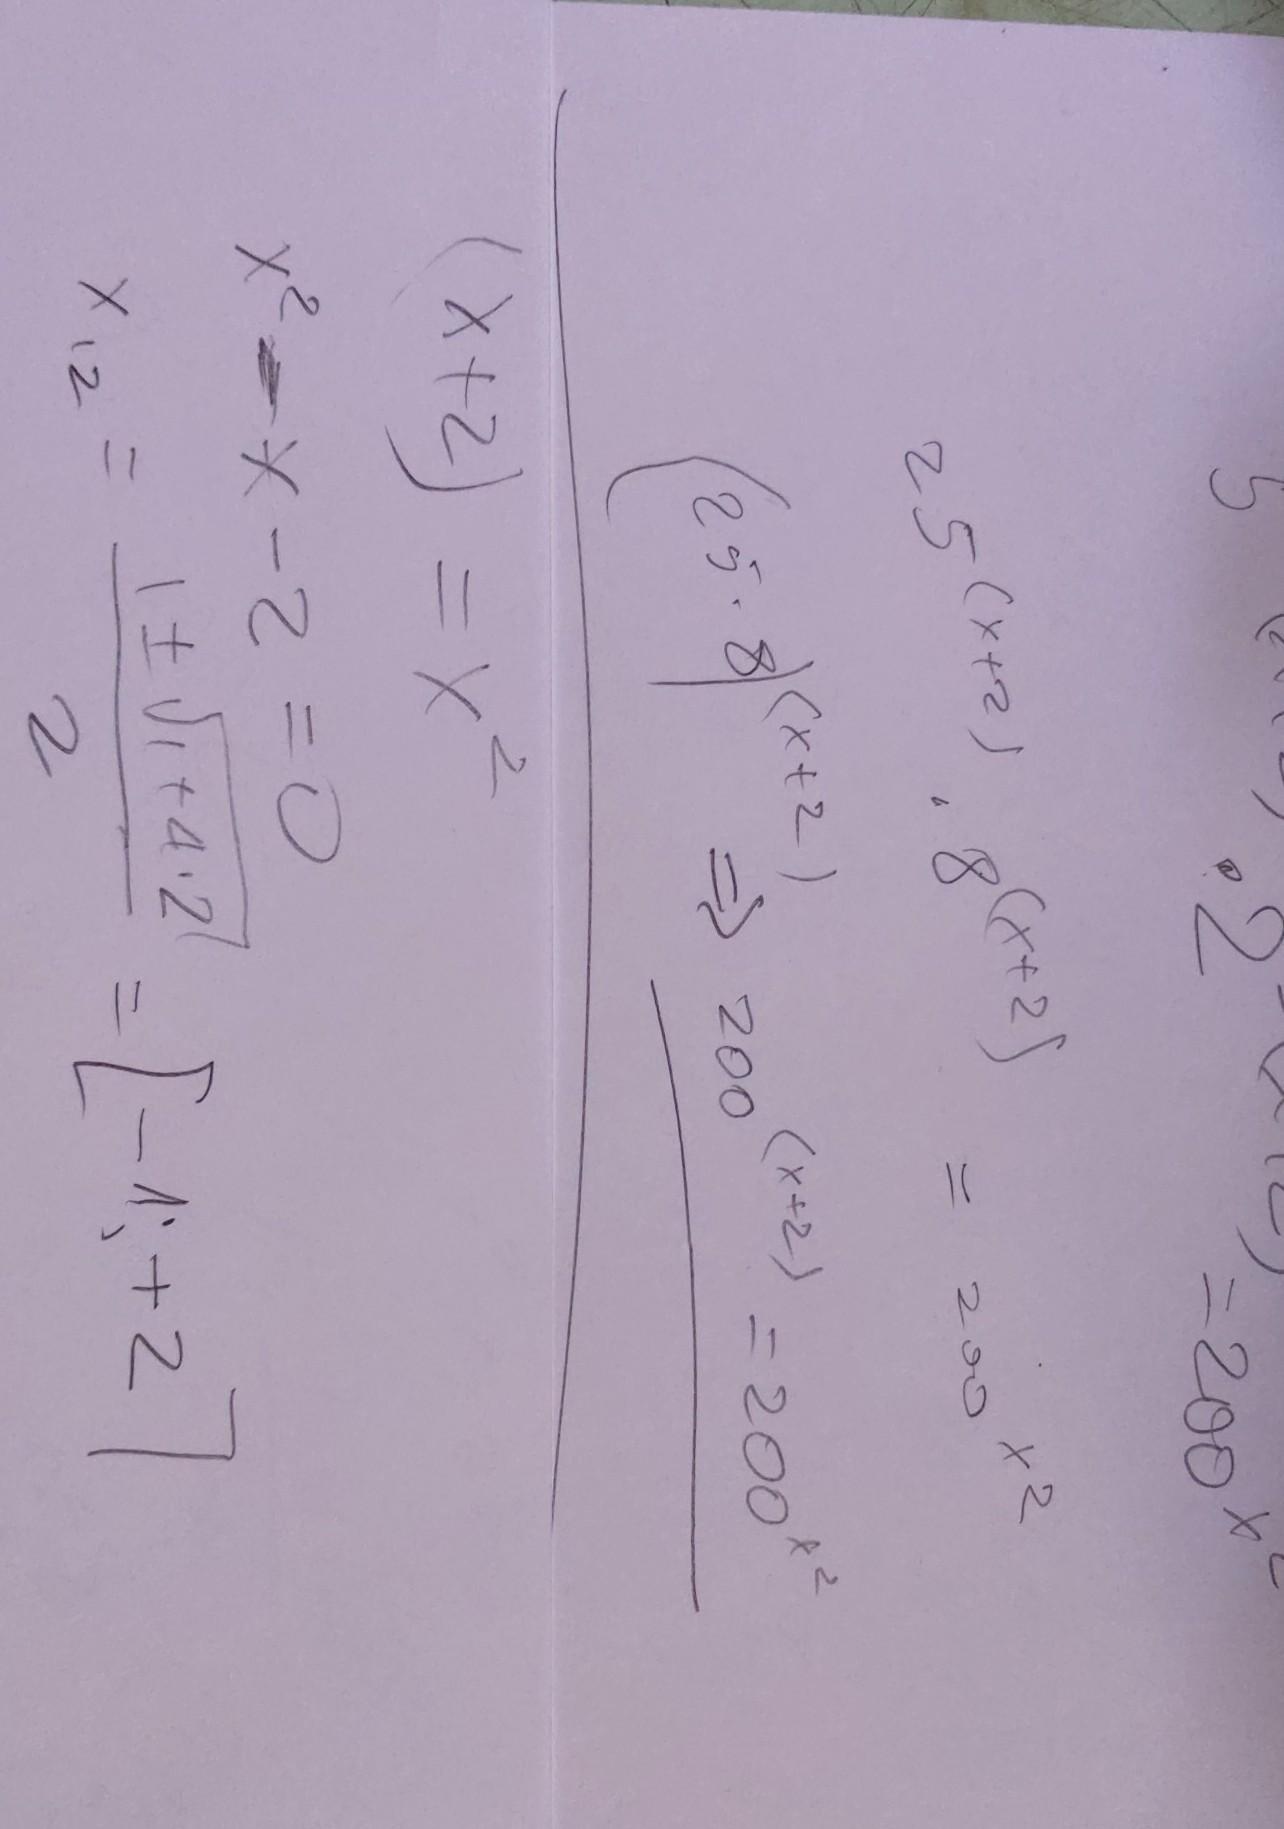 5 · 2 = 200^x²
25^(x+2) · 8^(x+2) = 200^x²
(25·8)^(x+2) ⇒ 200^(x+2) = 200^x²
(x+2) = x²
x² - x - 2 = 0
x₁,₂ = (1 ± √(1+4·2))/2 = [-1; +2]